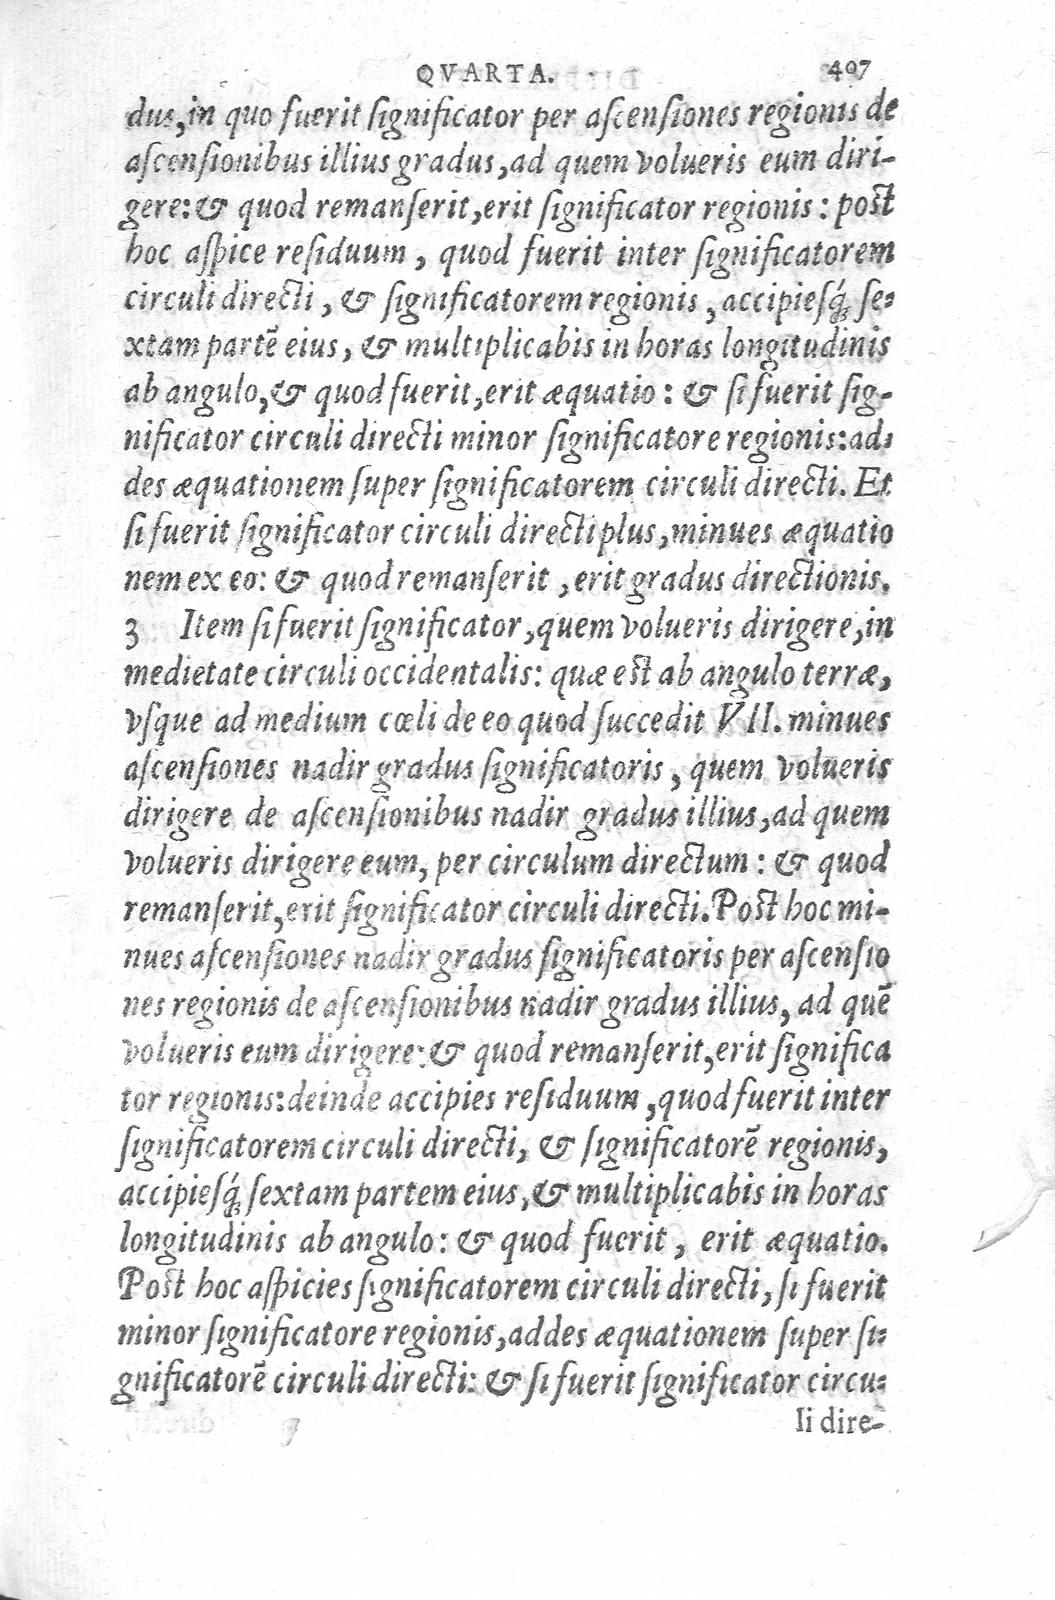 QVARTA. 407
dus, in quo fuerit ſignificator per aſcenſiones regionis de
aſcenſionibus illius gradus, ad quem volueris eum diri-
gere: & quod remanſerit, erit ſignificator regionis: poſt
hoc aſpice reſiduum, quod fuerit inter ſignificatorem
circuli directi, & ſignificatorem regionis, accipieſq́; ſe-
xtam partē eius, & multiplicabis in horas longitudinis
ab angulo, & quod fuerit, erit æquatio: & ſi fuerit ſig-
nificator circuli directi minor ſignificatore regionis: ad-
des æquationem ſuper ſignificatorem circuli directi. Et
ſi fuerit ſignificator circuli directi plus, minues æquatio
nem ex eo: & quod remanſerit, erit gradus directionis.
3 Item ſi fuerit ſignificator, quem volueris dirigere, in
medietate circuli occidentalis: quæ eſt ab angulo terræ,
vſque ad medium cœli de eo quod ſuccedit VII. minues
aſcenſiones nadir gradus ſignificatoris, quem volueris
dirigere de aſcenſionibus nadir gradus illius, ad quem
volueris dirigere eum, per circulum directum: & quod
remanſerit, erit ſignificator circuli directi. Poſt hoc mi-
nues aſcenſiones nadir gradus ſignificatoris per aſcenſio
nes regionis de aſcenſionibus nadir gradus illius, ad quē
volueris eum dirigere: & quod remanſerit, erit ſignifica
tor regionis: deinde accipies reſiduum, quod fuerit inter
ſignificatorem circuli directi, & ſignificatorē regionis,
accipieſq́; ſextam partem eius, & multiplicabis in horas
longitudinis ab angulo: & quod fuerit, erit æquatio.
Poſt hoc aſpicies ſignificatorem circuli directi, ſi fuerit
minor ſignificatore regionis, addes æquationem ſuper ſi-
gnificatorē circuli directi: & ſi fuerit ſignificator circu-
li dire-